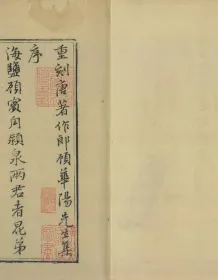 重刻唐著作郎顧華陽先生集
序
海鹽顧賓周潁泉兩君者昆弟